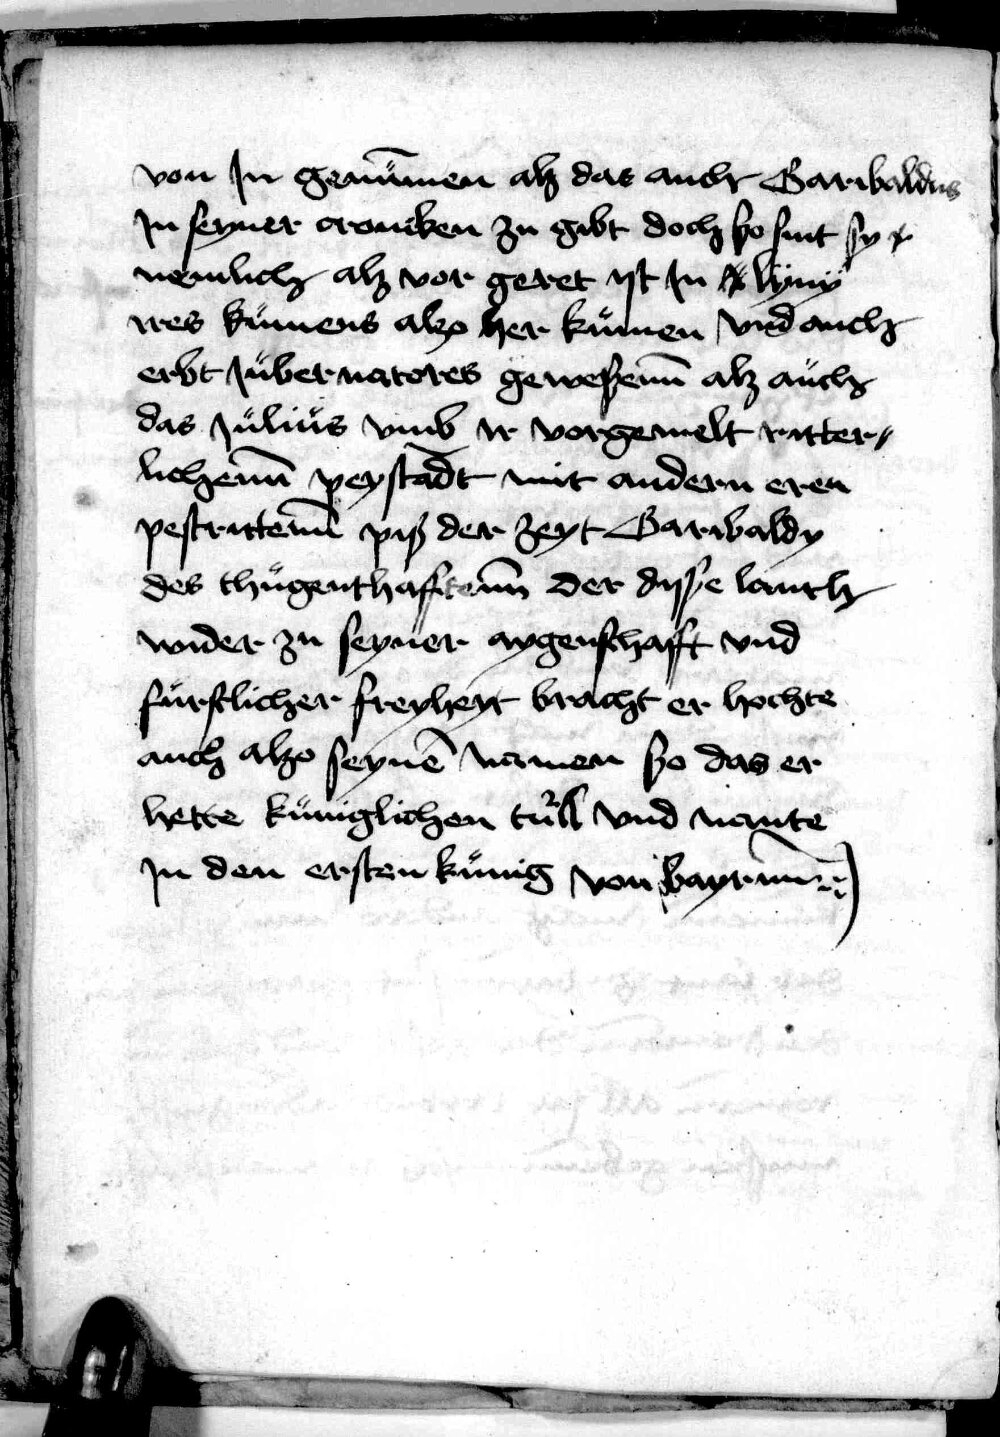 von In genu̅men alß das auch Garibaldus
In seyner croniken zu gibt doch so sint sy
nemlich alß vor geret ist In lÿnÿ
ires kümens also her kümen vnd auch
erbt Jübernatores gewesenn̅ alß aüch
das Jülius vmb ir vorgemelt ritter//
lichenn̅ peystadt mit andern eren
pestrittenn̅ piß der zeyt Garibaldy
des thügenthafftenn̅ der disse lanth
wider zu seyner aygenschafft vnd
fürstlicher freyheyt bracht er hochte
auch also seynē namen so das er
hette küniglichen und nante
In den ersten künig von bayrnn̅